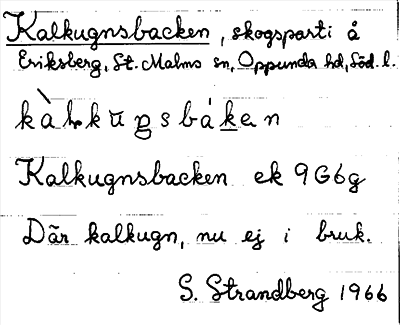 Kalkugnsbacken, skogsparti å
Eriksberg, St. Malms sn, Oppunda hd, Söd. l.
Kalkugnsbacken ek 9G6g
Där kalkugn, nu ej i bruk.
S. Strandberg 1966